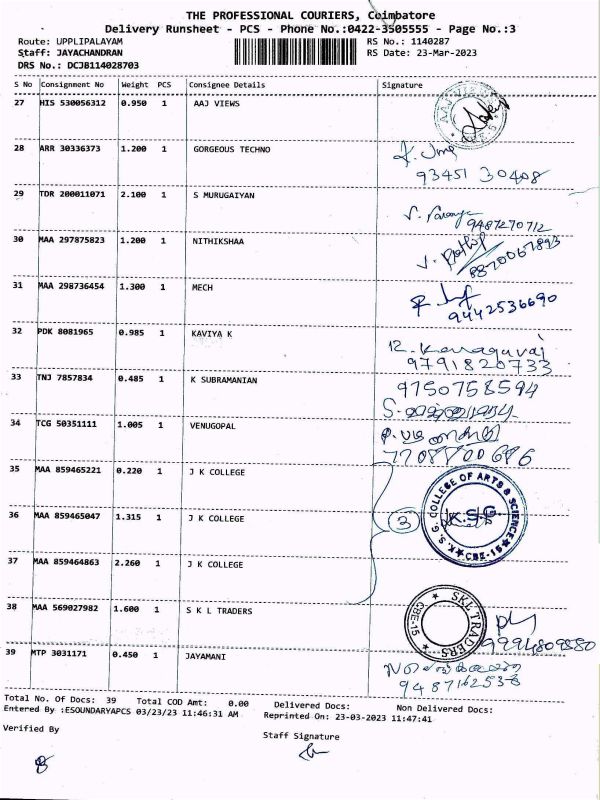 THE PROFESSIONAL COURIERS, Coimbatore
Delivery Runsheet - PCS - Phone No.:0422-3505555 - Page No.:3
Route: UPPLIPALAYAM RS No.: 1140287
Staff: JAYACHANDRAN RS Date: 23-Mar-2023
DRS No.: DCJB114028703
S No Consignment No Weight PCS Consignee Details Signature
27 HIS 530056312 0.950 1 AAJ VIEWS
28 ARR 30336373 1.200 1 GORGEOUS TECHNO
93451 30408
29 TDR 200011071 2.100 1 S MURUGAIYAN
9487270712
30 MAA 297875823 1.200 1 NITHIKSHAA
8870067893
31 MAA 298736454 1.300 1 MECH
9442536690
32 PDK 8081965 0.985 1 KAVIYA K
9791820733
33 TNJ 7857834 0.485 1 K SUBRAMANIAN
9750758594
34 TCG 50351111 1.005 1 VENUGOPAL
35 MAA 859465221 0.220 1 J K COLLEGE
36 MAA 859465047 1.315 1 J K COLLEGE
3
K. S. G COLLEGE OF ARTS & SCIENCE
K.S.G.
CBE-15
37 MAA 859464863 2.260 1 J K COLLEGE
38 MAA 569027982 1.600 1 S K L TRADERS
SKL TRADERS
CBE-15
9994809880
39 MTP 3031171 0.450 1 JAYAMANI
Total No. Of Docs: 39 Total COD Amt: 0.00 Delivered Docs: Non Delivered Docs:
Entered By :ESOUNDARYAPCS 03/23/23 11:46:31 AM Reprinted On: 23-03-2023 11:47:41
Verified By Staff Signature